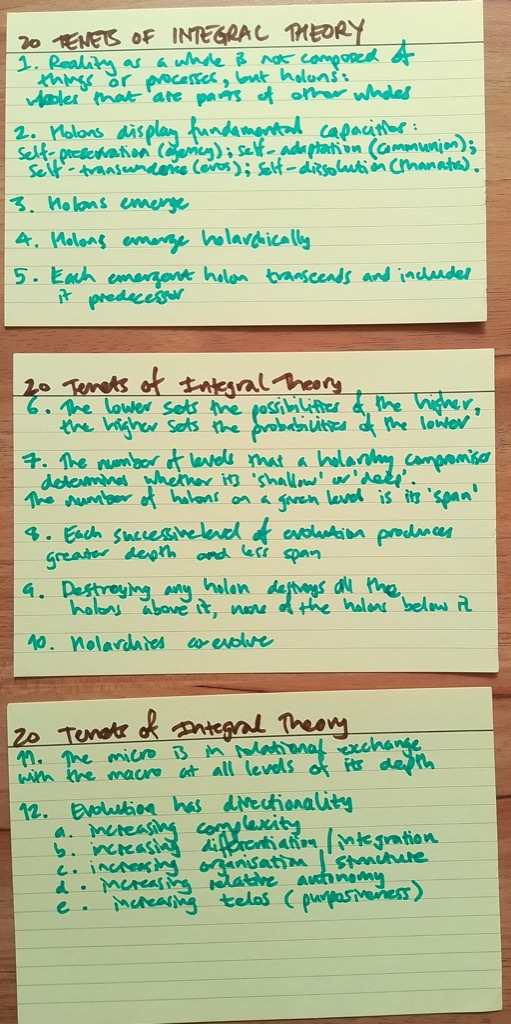 20 TENETS OF INTEGRAL THEORY
1. Reality as a whole is not composed of
things or processes, but holons:
wholes that are parts of other wholes
2. Holons display fundamental capacities:
self-preservation (agency); self-adaptation (communion);
self-transcendence (eros); self-dissolution (thanatos).
3. Holons emerge
4. Holons emerge holarchically
5. Each emergent holon transcends and includes
it predecessor
20 Tenets of Integral Theory
6. The lower sets the possibilities of the higher,
the higher sets the probabilities of the lower
7. The number of levels that a holarchy compromises
determines whether its 'shallow' or 'deep'.
The number of holons on a given level is its 'span'
8. Each successive level of evolution produces
greater depth and less span
9. Destroying any holon destroys all the
holons above it, none of the holons below it
10. Holarchies co-evolve
20 Tenets of Integral Theory
11. The micro is in relational exchange
with the macro at all levels of its depth
12. Evolution has directionality
a. increasing complexity
b. increasing differentiation / integration
c. increasing organisation / structure
d. increasing relative autonomy
e. increasing telos (purposiveness)